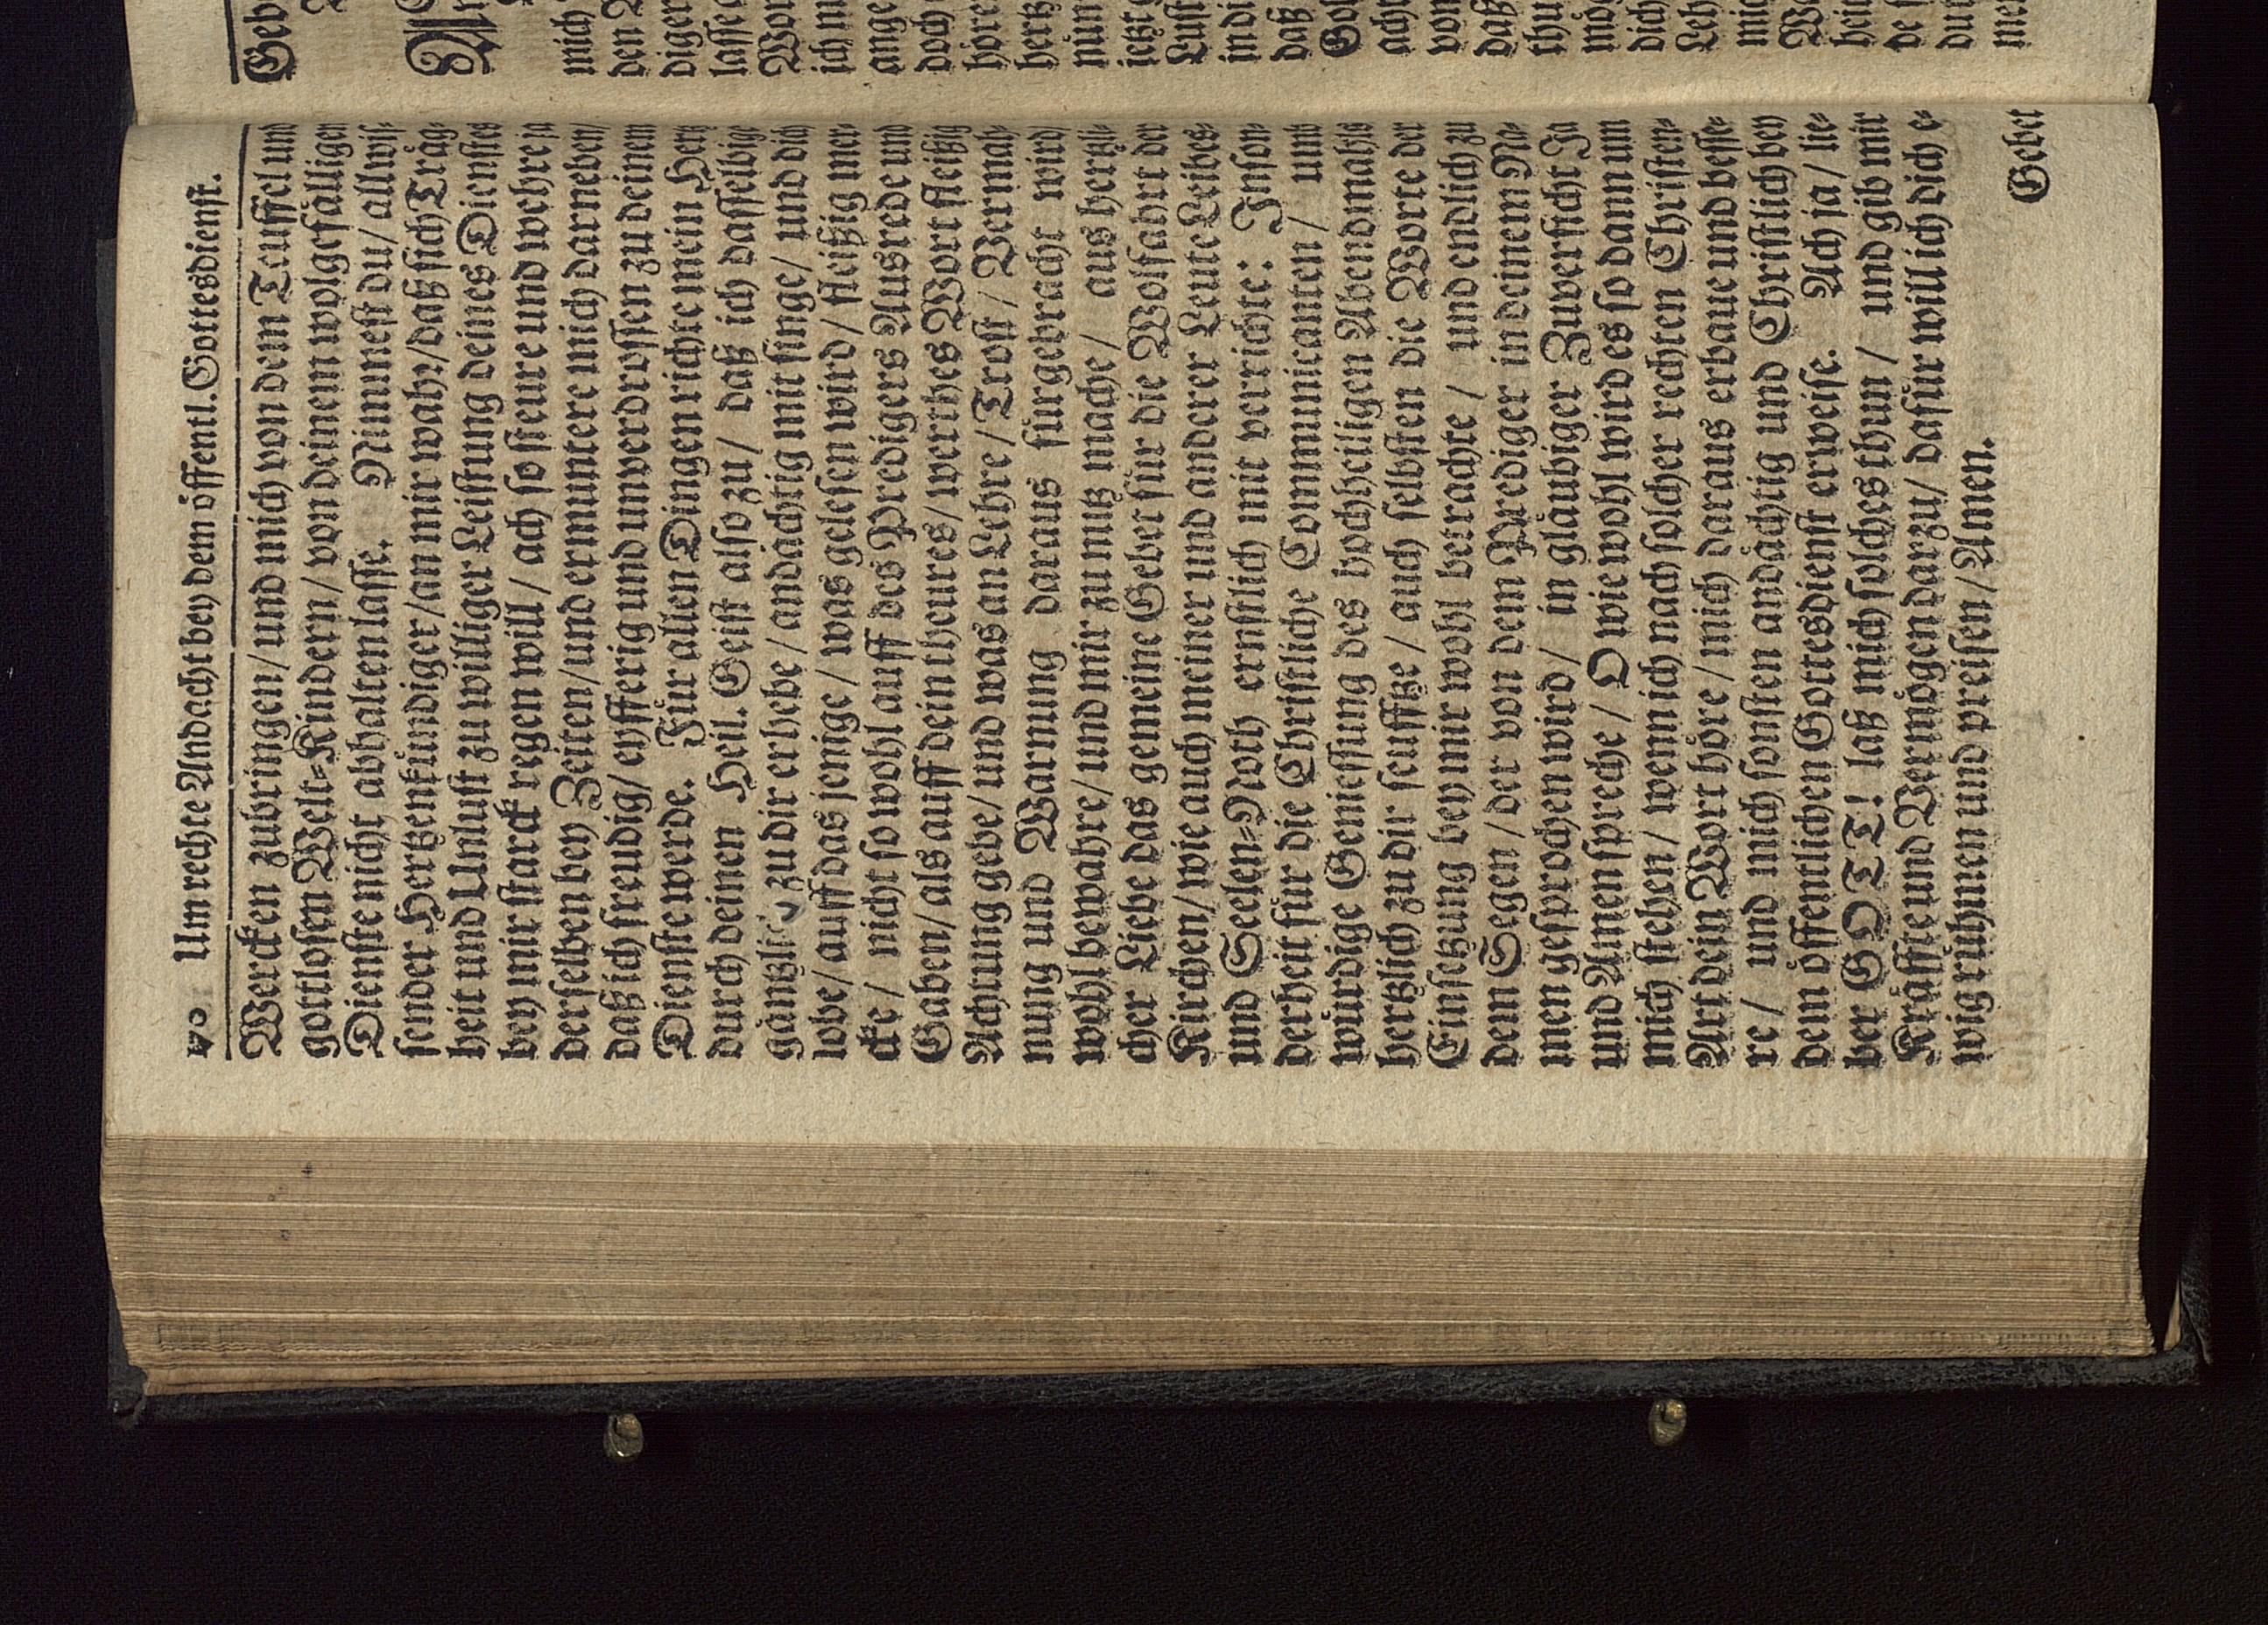 Um rechte Andacht bey dem öffentl. Gottesdienst.
Wercken zubringen/ und mich von dem Teuffel und
gottlosen Welt-Kindern/ von deinem wolgefälligen
Dienste nicht abhalten lasse. Nimmest du/ allwis-
sender Hertzenkündiger/ an mir wahr/ daß sich Träg-
heit und Unlust zu williger Leistung deines Dienstes
bey mir starck regen will/ ach so steure und wehre ja
derselben bey Zeiten/ und ermuntere mich darneben/
daß ich freudig/ eyfferig und unverdrossen zu deinem
Dienste werde. Für allen Dingen richte mein Hertz
durch deinen Heil. Geist also zu/ daß ich dasselbige
gäntzlich zu dir erhebe/ andächtig mit singe/ und dich
lobe/ auff das jenige/ was gelesen wird/ fleißig mer-
cke/ nicht so wohl auff des Predigers Ausrede und
Gaben/ als auff dein theures/ werthes Wort fleißig
Achtung gebe/ und was an Lehre/ Trost/ Vermah-
nung und Warnung daraus fürgebracht wird/
wohl bewahre/ und mir zu nutz mache/ aus hertzli-
cher Liebe das gemeine Gebet für die Wolfahrt der
Kirchen/ wie auch meiner und anderer Leute Leibes-
und Seelen-Noth ernstlich mit verrichte: Inson-
derheit für die Christliche Communicanten/ umb
würdige Geniessung des hochheiligen Abendmahls
hertzlich zu dir seufftze/ auch selbsten die Worte der
Einsetzung bey mir wohl betrachte/ und endlich zu
dem Segen/ der von dem Prediger in deinem Na-
men gesprochen wird/ in gläubiger Zuversicht Ja
und Amen spreche/ O wie wohl wird es so dann um
mich stehen/ wenn ich nach solcher rechten Christen-
Art dein Wort höre/ mich daraus erbaue und besse-
re/ und mich sonsten andächtig und Christlich bey
dem öffentlichen Gottesdienst erweise. Ach ja/ lie-
ber GOTT! laß mich solches thun/ und gib mir
Kräffte und Vermögen darzu/ dafür will ich dich e-
wig rühmen und preisen/ Amen.
Gebet
Geb
mich
den
diger
lasse
Wor
ich m
ange
doch
höre
hertz
nun
jetzt
Lust
in di
daß
Got
ach
von
daß
thu
mög
dich
Leb
mic
We
hei
de s
du
me